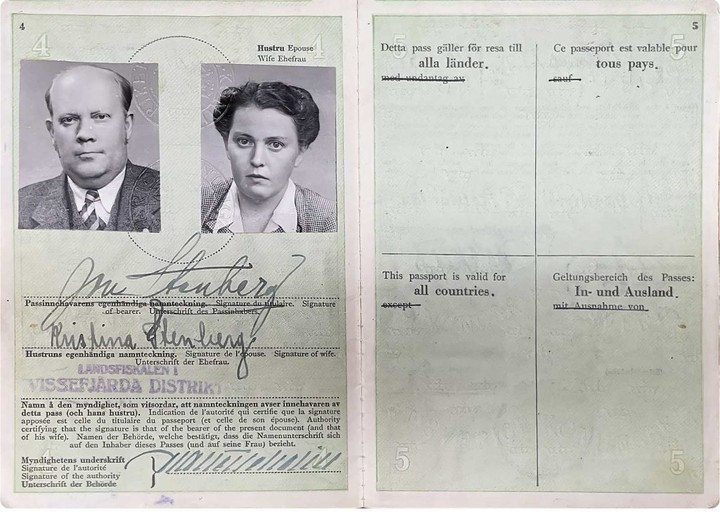 4
4
4
Hustru Epouse
Wife Ehefrau
Stenberg
Passinnehavarens egenhändiga namnteckning. Signature du titulaire. Signature
of bearer. Unterschrift des Passinhabers.
Kristina Stenberg
Hustruns egenhändiga namnteckning. Signature de l'épouse. Signature of wife.
Unterschrift der Ehefrau.
LANDSFISKALEN I
VISSEFJÄRDA DISTRIKT
Namn å den myndighet, som vitsordar, att namnteckningen avser innehavaren av
detta pass (och hans hustru). Indication de l'autorité qui certifie que la signature
apposée est celle du titulaire du passeport (et celle de son épouse). Authority
certifying that the signature is that of the bearer of the present document (and that
of his wife). Namen der Behörde, welche bestätigt, dass die Namenunterschrift sich
auf den Inhaber dieses Passes (und auf seine Frau) bezieht.
Myndighetens underskrift
Signature de l'autorité
Signature of the authority
Unterschrift der Behörde
5
5
5
Detta pass gäller för resa till
alla länder.
med undantag av
Ce passeport est valable pour
tous pays.
sauf
This passport is valid for
all countries.
except
Geltungsbereich des Passes:
In- und Ausland.
mit Ausnahme von
5
5